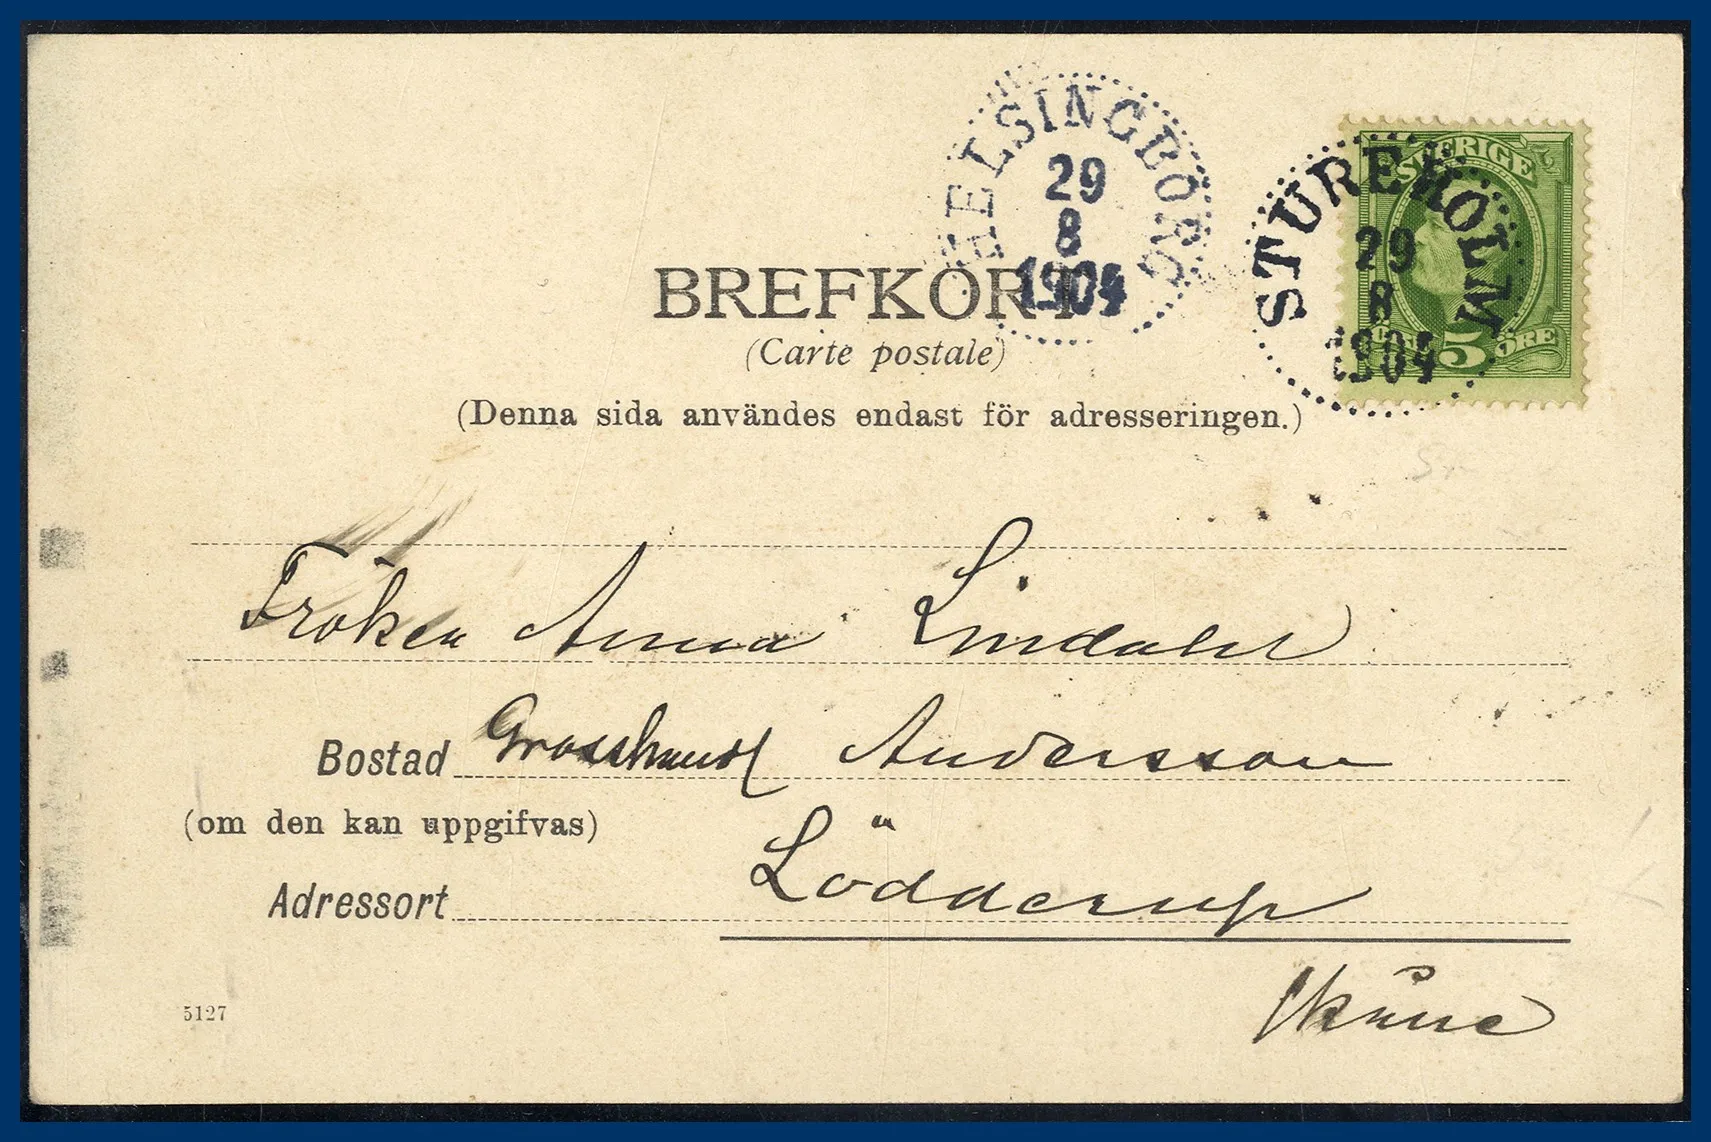 HELSINGBORG
29
8
1904
SVERIGE
5 ÖRE
STUREHOLM
29
8
1904
BREFKORT
(Carte postale)
(Denna sida användes endast för adresseringen.)
Fröken Anna Lindahl
Bostad Grosshandl Andersson
(om den kan uppgifvas)
Adressort Lödderup
Skåne
5127